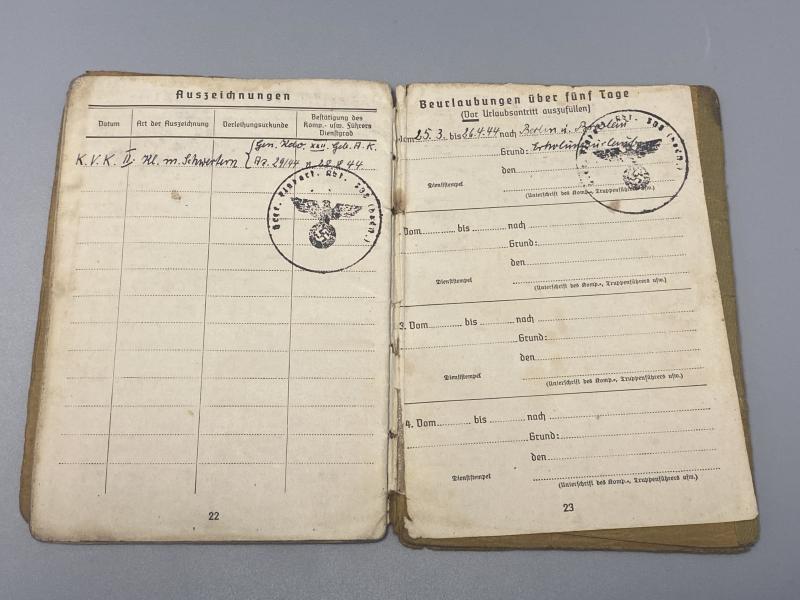 Auszeichnungen
Datum
Art der Auszeichnung
Verleihungsurkunde
Bestätigung des
Komp.- usw. Führers
Dienstgrad
K.V.K. II. Kl. m. Schwertern
Gen. Kdo. XXII. Geb. A.K.
Nr. 29/44 v. 28.8.44
22
Beurlaubungen über fünf Tage
(Vor Urlaubsantritt auszufüllen)
Vom 25.3. bis 26.4.44 nach Berlin u.
Grund: Erholungsurlaub
den
Dienststempel
(Unterschrift des Komp.-, Truppenführers usw.)
. Vom bis nach
Grund:
den
Dienststempel
(Unterschrift des Komp.-, Truppenführers usw.)
3. Vom bis nach
Grund:
den
Dienststempel
(Unterschrift des Komp.-, Truppenführers usw.)
4. Vom bis nach
Grund:
den
Dienststempel
(Unterschrift des Komp.-, Truppenführers usw.)
23